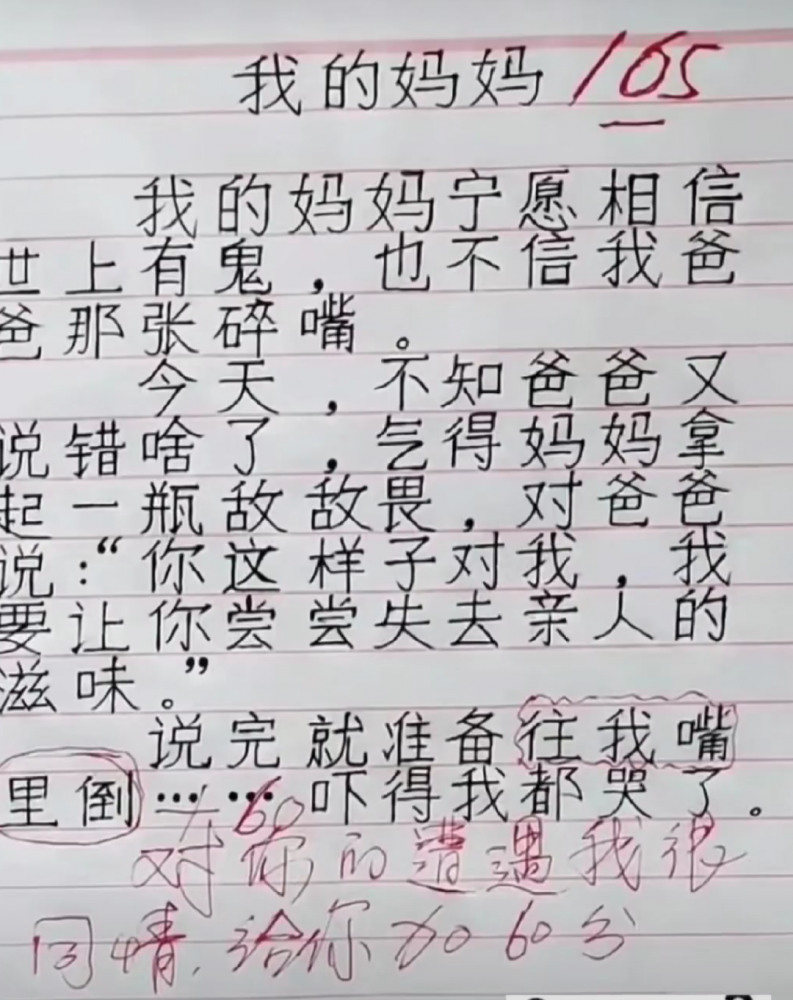 我的妈妈 105
我的妈妈宁愿相信
世上有鬼，也不信我爸
爸那张碎嘴。
今天，不知爸爸又
说错啥了，气得妈妈拿
起一瓶敌敌畏，对爸爸
说：“你这样子对我，我
要让你尝尝失去亲人的
滋味。”
说完就准备往我嘴
里倒……吓得我都哭了。
+60
对你的遭遇我很
同情，给你加60分